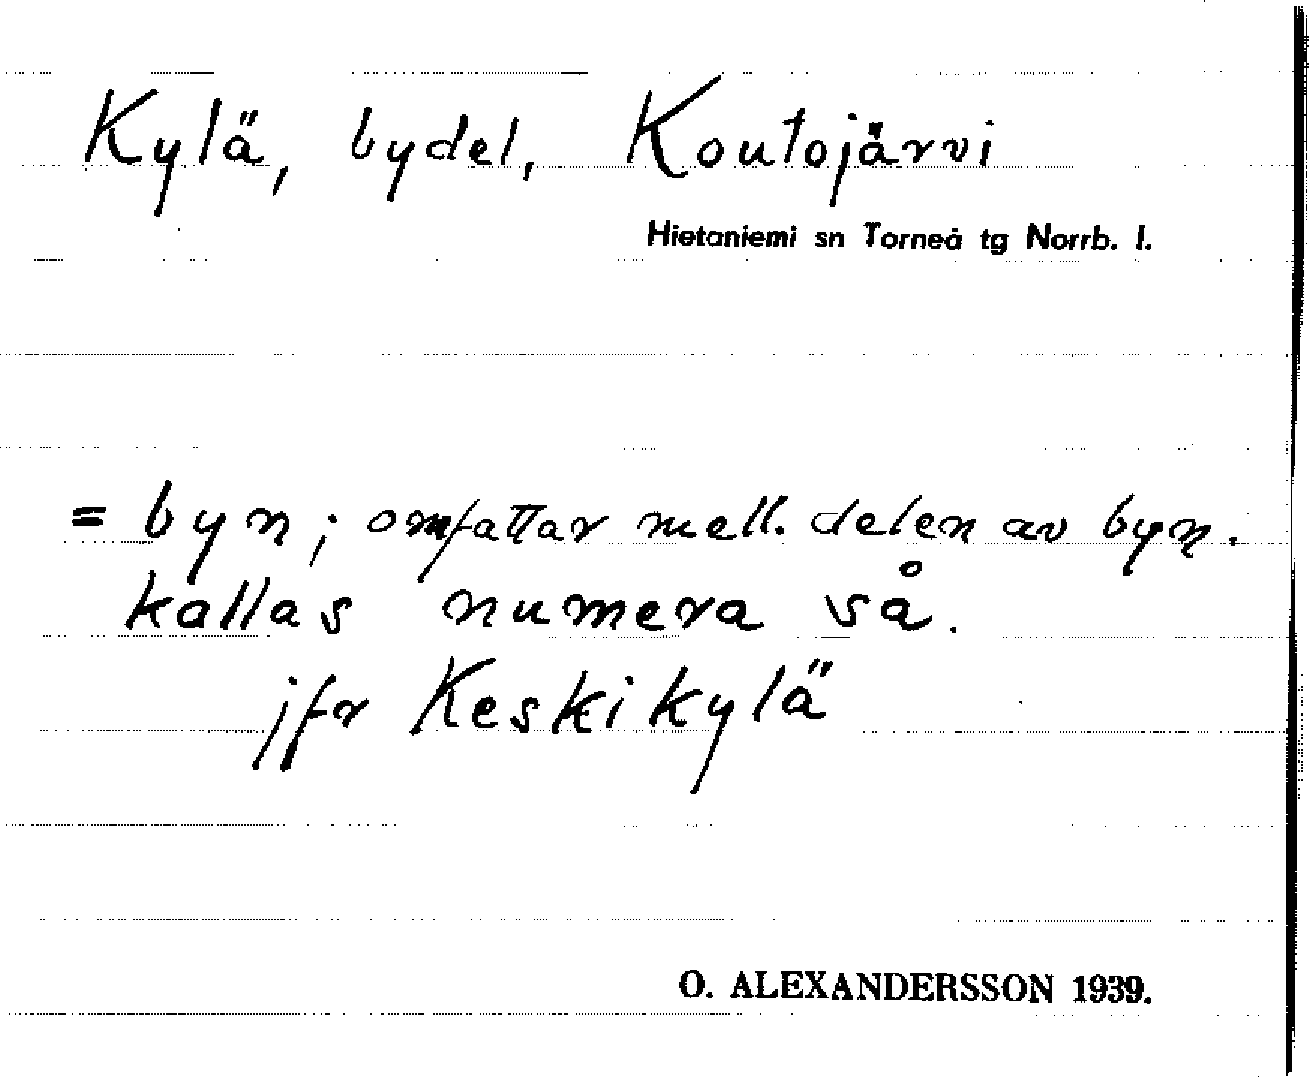 Kylä, bydel, Koutojärvi
Hietaniemi sn Torneå tg Norrb. l.
= byn; omfattar mell. delen av byn.
kallas numera så.
jfr Keskikylä
O. ALEXANDERSSON 1939.